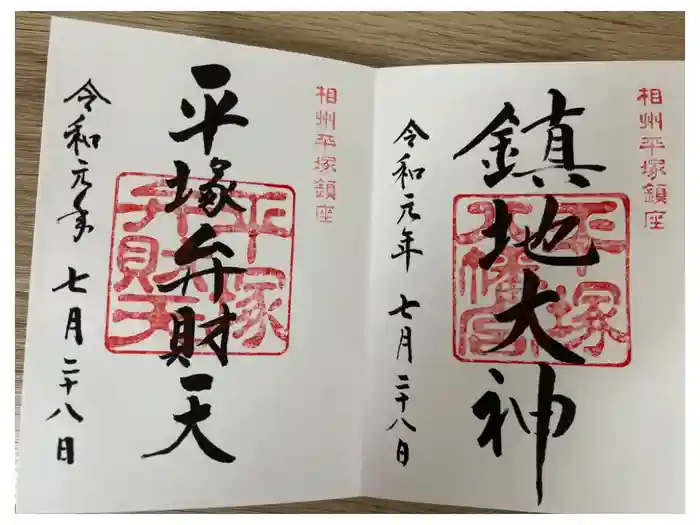 相州平塚鎮座
鎮地大神
平塚
八幡宮
令和元年 七月二十八日
相州平塚鎮座
平塚弁財天
平塚
弁財天
令和元年 七月二十八日